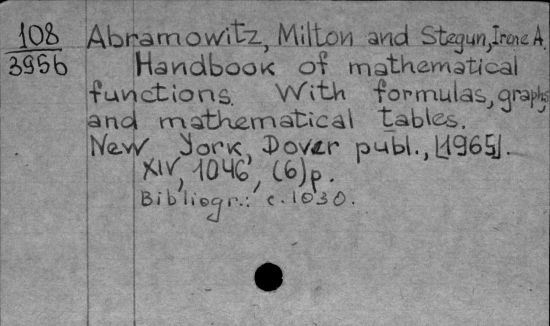 108 Abramowitz, Milton and Stegun, Irene A.
3956 Handbook of mathematical
functions. With formulas, graphs,
and mathematical tables.
New York, Dover publ., [1965].
XIV, 1046, (6)p.
Bibliogr.: c. 1030.